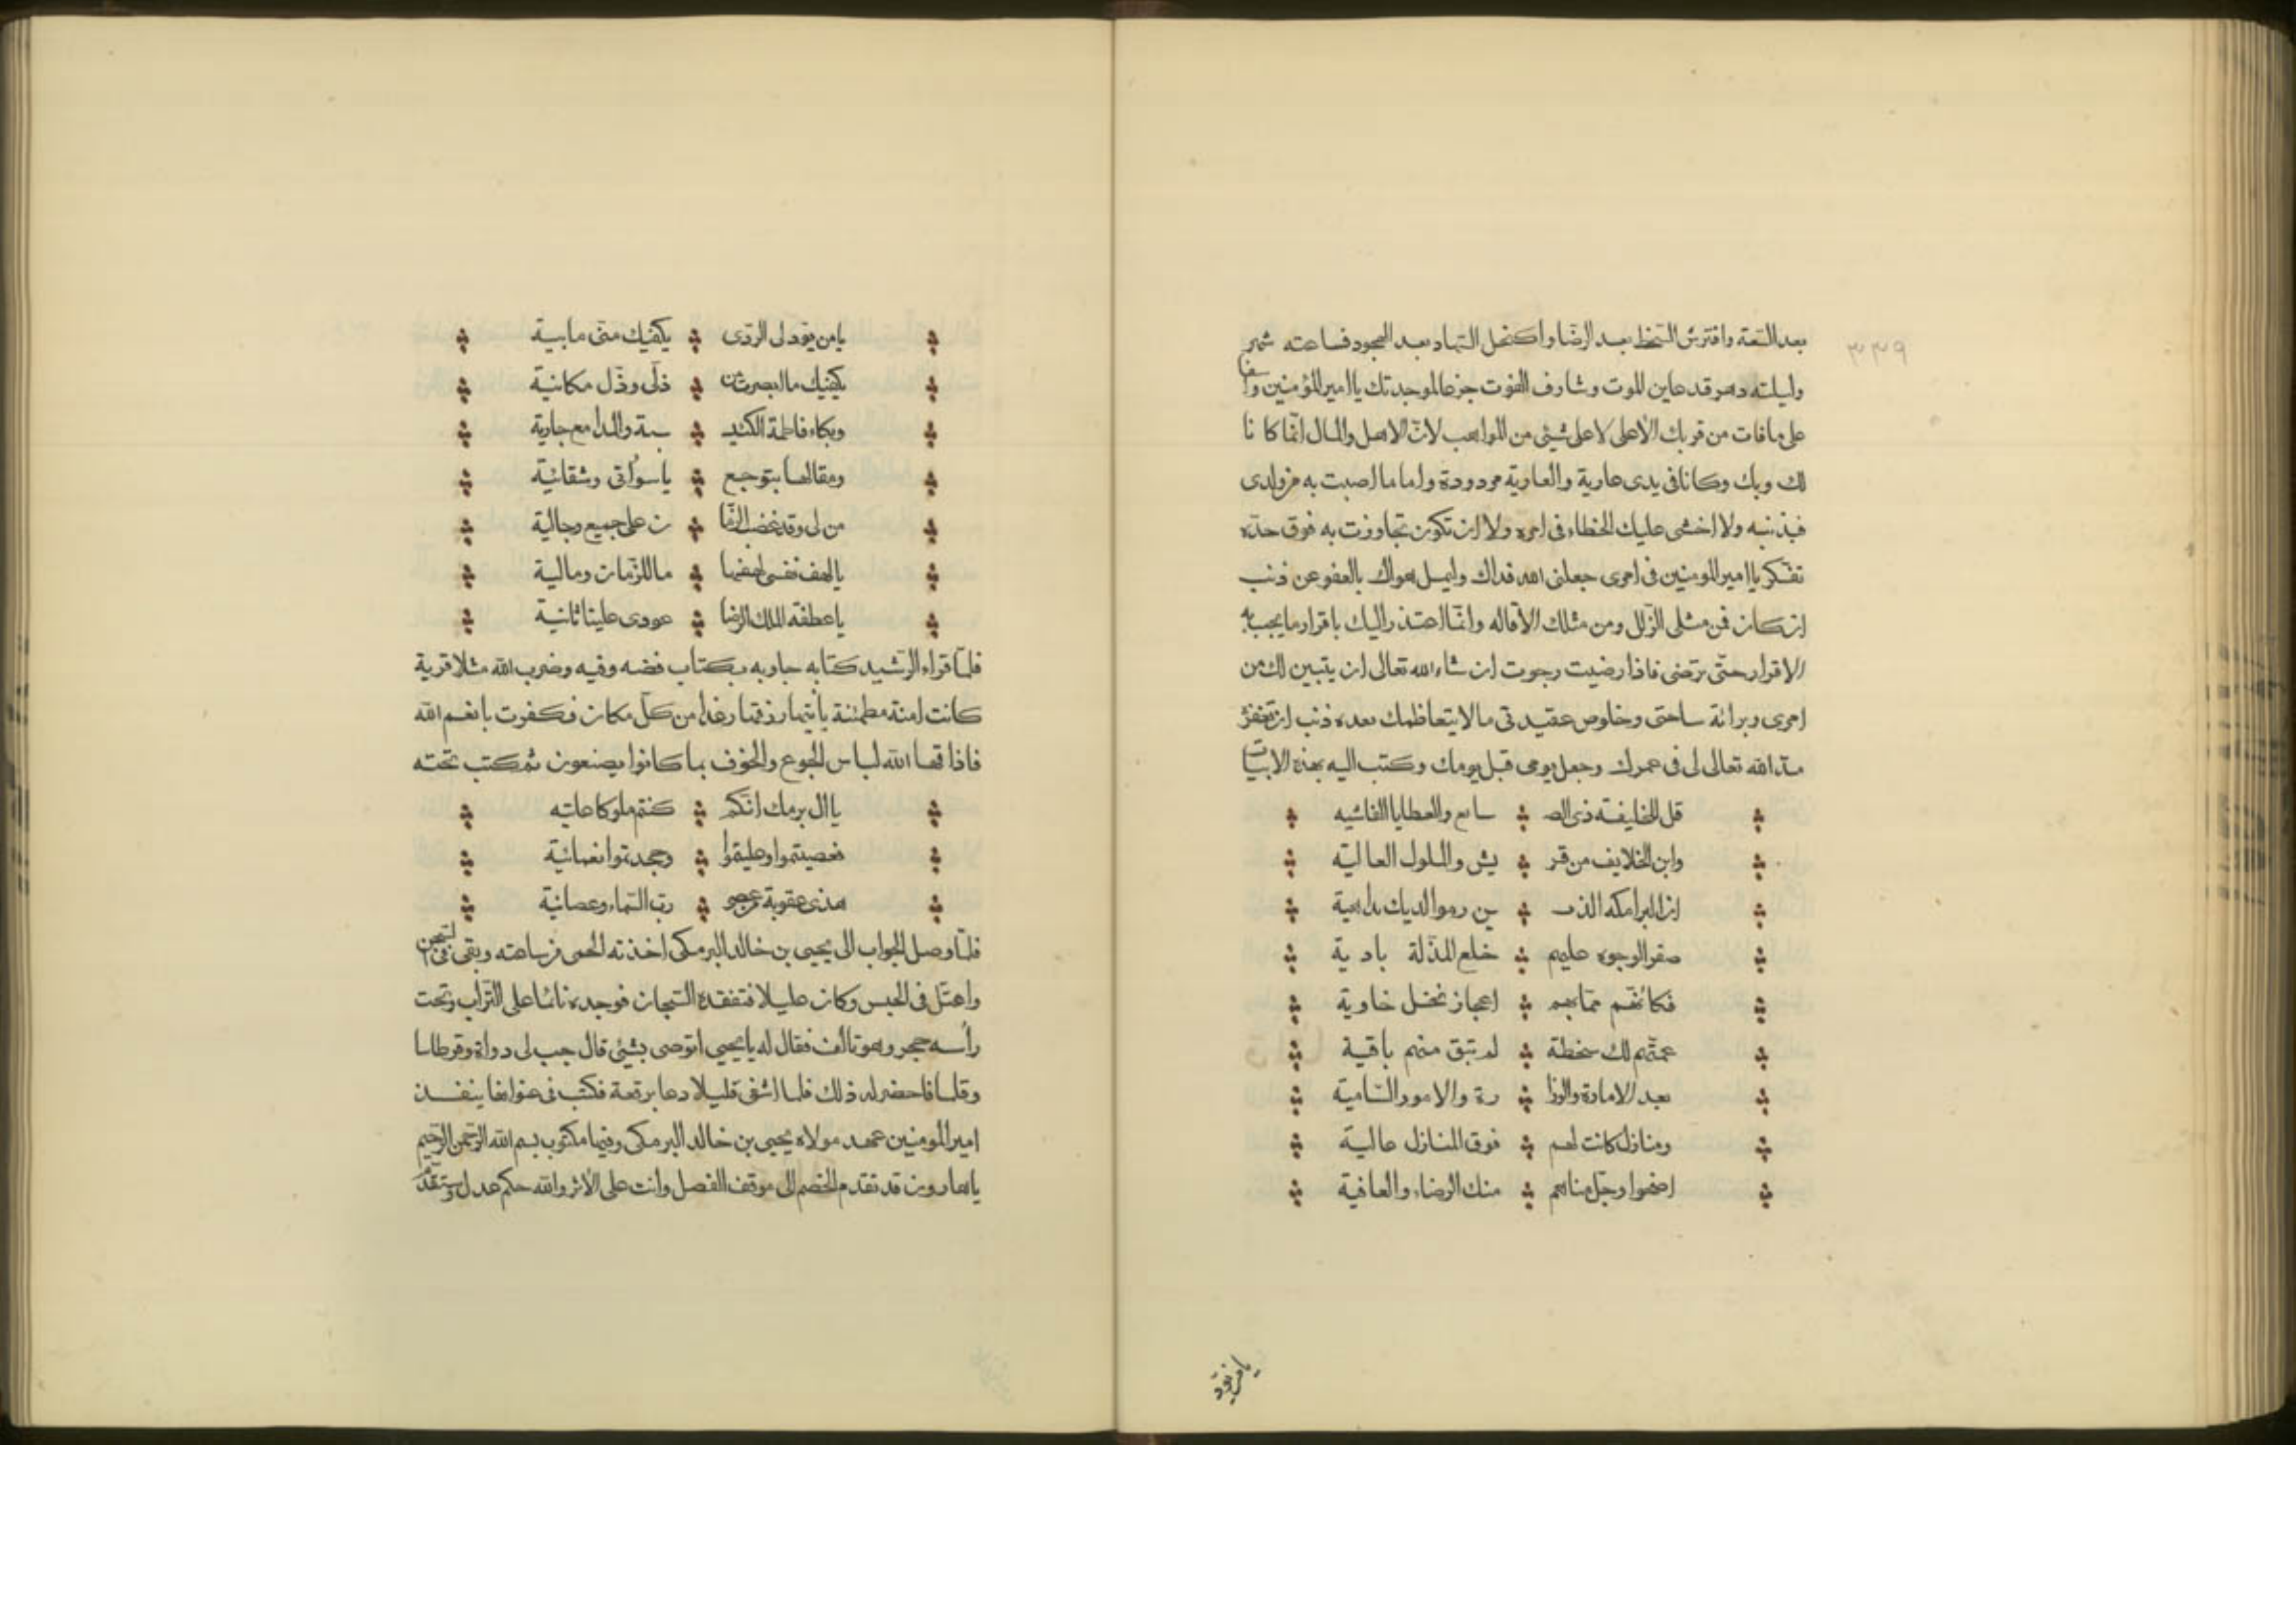 ٣٣٩
بعد السّعة وافترش السّخط بعد الرضّا واكتحل السّهاد بعد الهجود فساعته شهر
وليلته دهر قد عاين الموت وشارف الفوت جزعا لموجدتك يا امير المؤمنين واسفا
على ما فات من قربك الاعلى لا على شيئ من المواهب لانّ الاهل والمال انّما كانا
لك وبك وكانا فى يدى عارية والعارية مردودة واما ما اصبت به من ولدى
فبذنبه ولا اخشى عليك الخطاء فى امره ولا ان تكون تجاوزت به فوق حدّه
تفكر يا امير المومنين فى امرى جعلنى الله فداك وليمل هواك بالعفو عن ذنب
ان كان فمن مثلى الزّلل ومن مثلك الاقاله وانّما اعتذر اليك باقرار ما يجب به
الاقرار حتّى ترضى فاذا رضيت رجوت ان شاء الله تعالى ان يتبين لك من
امرى وبرائة ساحتى وخلوص عقيدتى ما لا يتعاظمك بعده ذنب ان تغفره
مدّ الله تعالى لى فى عمرك وجعل يومى قبل يومك وكتب اليه بهذه الابيات
قل للخليفة ذى الصـ سايع والعطايا الفاشيه
وابن الخلايف من قر يش والملوك العالية
ان البرامكه الذيـ ـين رموا لديك بداهية
صفر الوجوه عليهم خلع المذلّة بادية
فكانّهم ممّا بهم اعجاز نخل خاوية
عمتّهم لك سخطة لم تبق منهم باقية
بعد الامارة والوزا رة والامور السّامية
ومنازل كانت لهم فوق المنازل عالية
اضحوا وجلّ مناهم منك الرضاء والعافية
يا من يود
يا من يود لى الردّى يكفيك منّى ما بية
يكفيك ما ابصرت من ذلّى وذلّ مكانية
وبكاء فاطمة الكئيـ ـبة والمدامع جارية
ومقالها بتوجع يا سوأتى وشقائية
من لى وقد غضب الزّما ن على جميع رجالية
يا لهف نفسى لهفها ما للزّمان وماليـة
يا عطفة الملك الرضا عودى علينا ثانية
فلمّا قراء الرّشيد كتابه جاوبه بكتاب فضه وفيه وضرب الله مثلا قرية
كانت امنة مطمئنة ياتيها رزقها رغدا من كلّ مكان فكفرت بانعم الله
فاذاقها الله لباس الجوع والخوف بما كانوا يصنعون ثم كتب تحته
يا ال برمك انّكم كنتم ملوكا عاتيه
فعصيتموا وطغيتموا وجحدتموا نعمائية
هذى عقوبة من عصى ربّ السّماء وعصانية
فلمّا وصل الجواب الى يحيى بن خالد البرمكى اخذته الحمى من ساعته وبقى فى السّجن
واعتّل فى الحبس وكان عليلا فتفقده السّجان فوجده نائما على التّراب وتحت
رأسه حجر وهو تالف فقال له يا يحيى اتوصى بشيئ قال جب لى دواة وقرطاسا
وقلما فاحضر له ذلك فلما اشفى قليلا دعا برقعة فكتب فى عنوانها ينفـذ
امير المومنين عهد مولاه يحيى بن خالد البرمكى وفيها مكتوب بسم الله الرّحمن الرّحيم
يا هارون قد تقدم الخصم الى موقف الفصل وانت على الاثر والله حكم عدل وستقدم